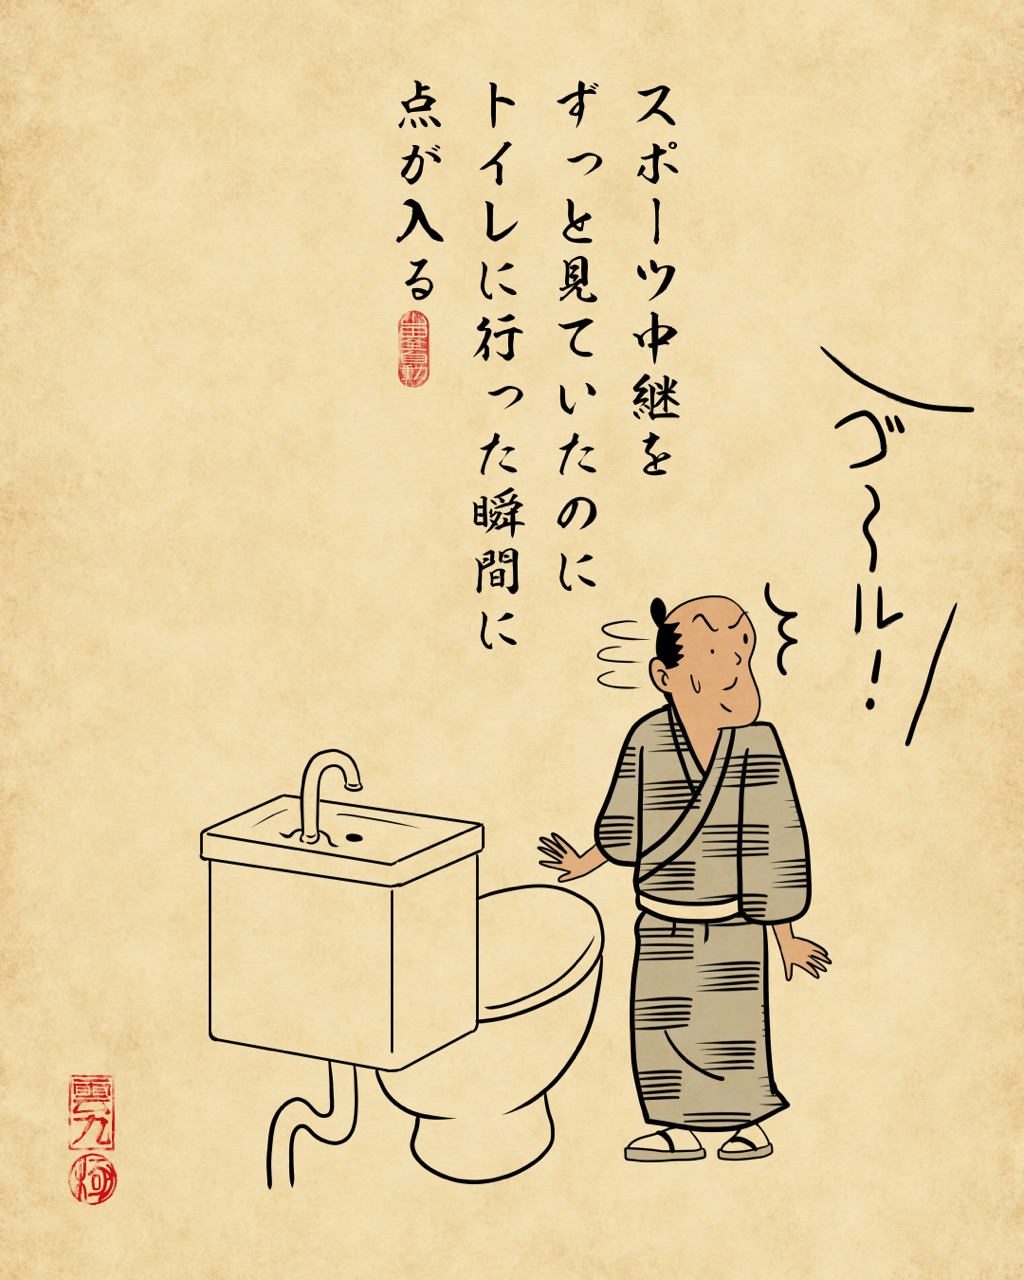 スポーツ中継を
ずっと見ていたのに
トイレに行った瞬間に
点が入る
ゴ〜ル！